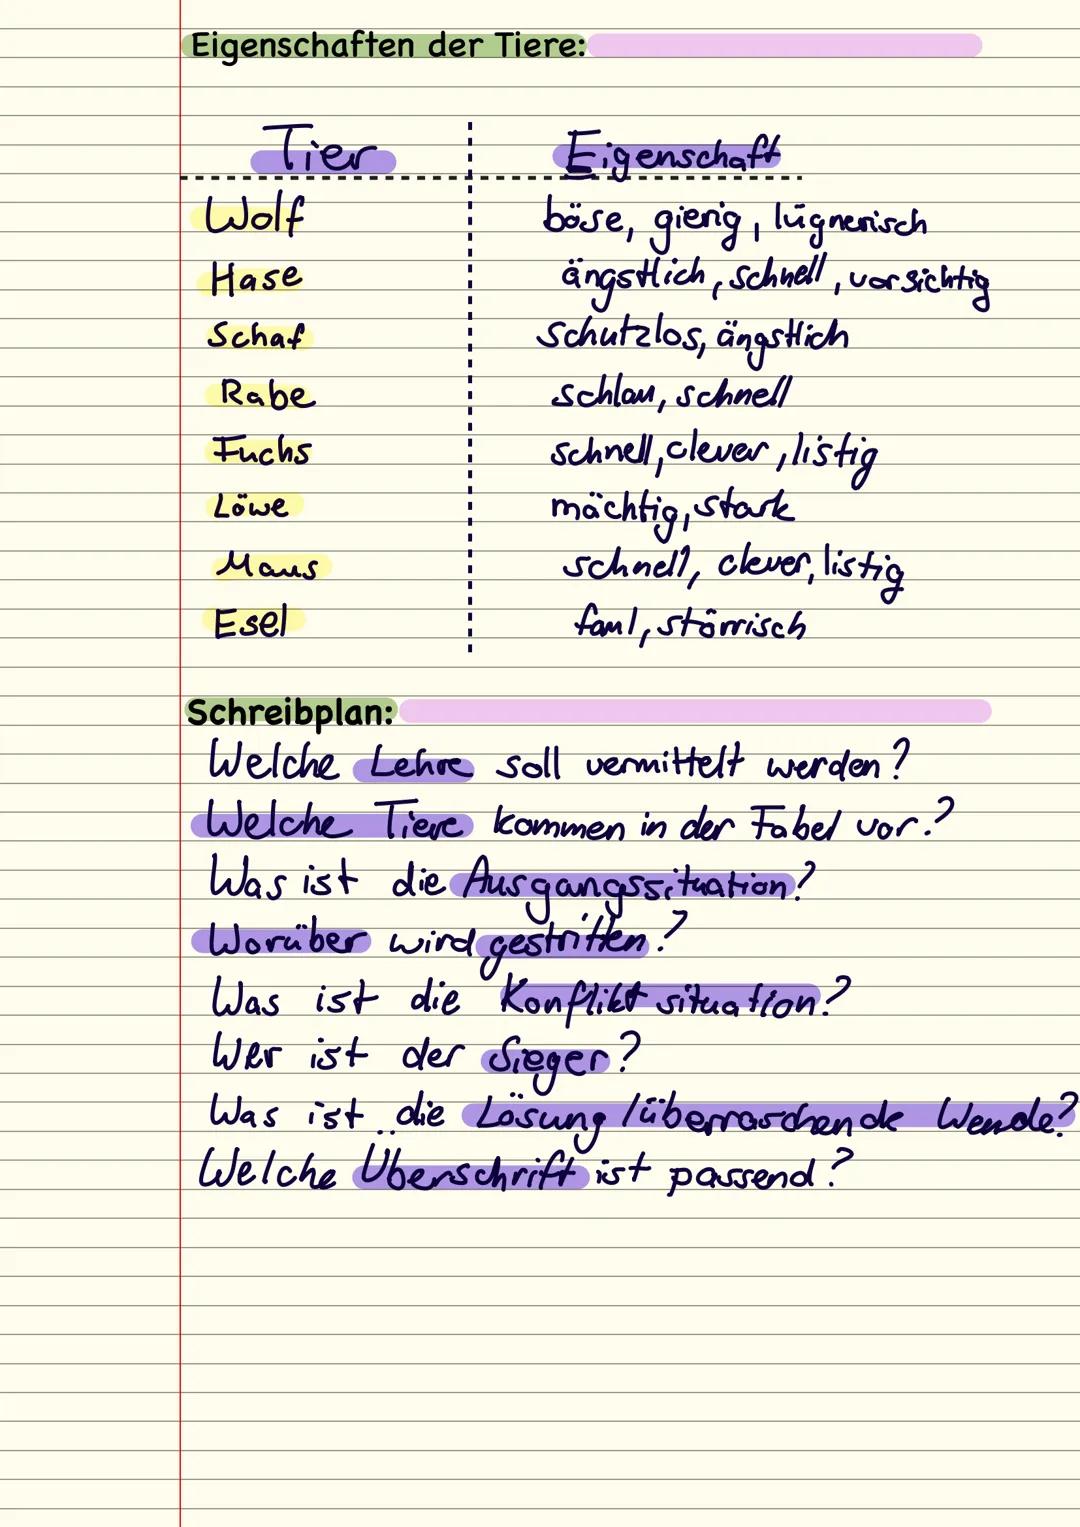 Eigenschaften der Tiere:
Tier Eigenschaft
Wolf böse, gierig, lügnerisch
Hase ängstlich, schnell, vorsichtig
Schaf schutzlos, ängstlich
Rabe schlau, schnell
Fuchs schnell, clever, listig
Löwe mächtig, stark
Maus schnell, clever, listig
Esel faul, störrisch
Schreibplan:
Welche Lehre soll vermittelt werden?
Welche Tiere kommen in der Fabel vor?
Was ist die Ausgangssituation?
Worüber wird gestritten?
Was ist die Konfliktsituation?
Wer ist der Sieger?
Was ist die Lösung/überraschende Wende?
Welche Überschrift ist passend?